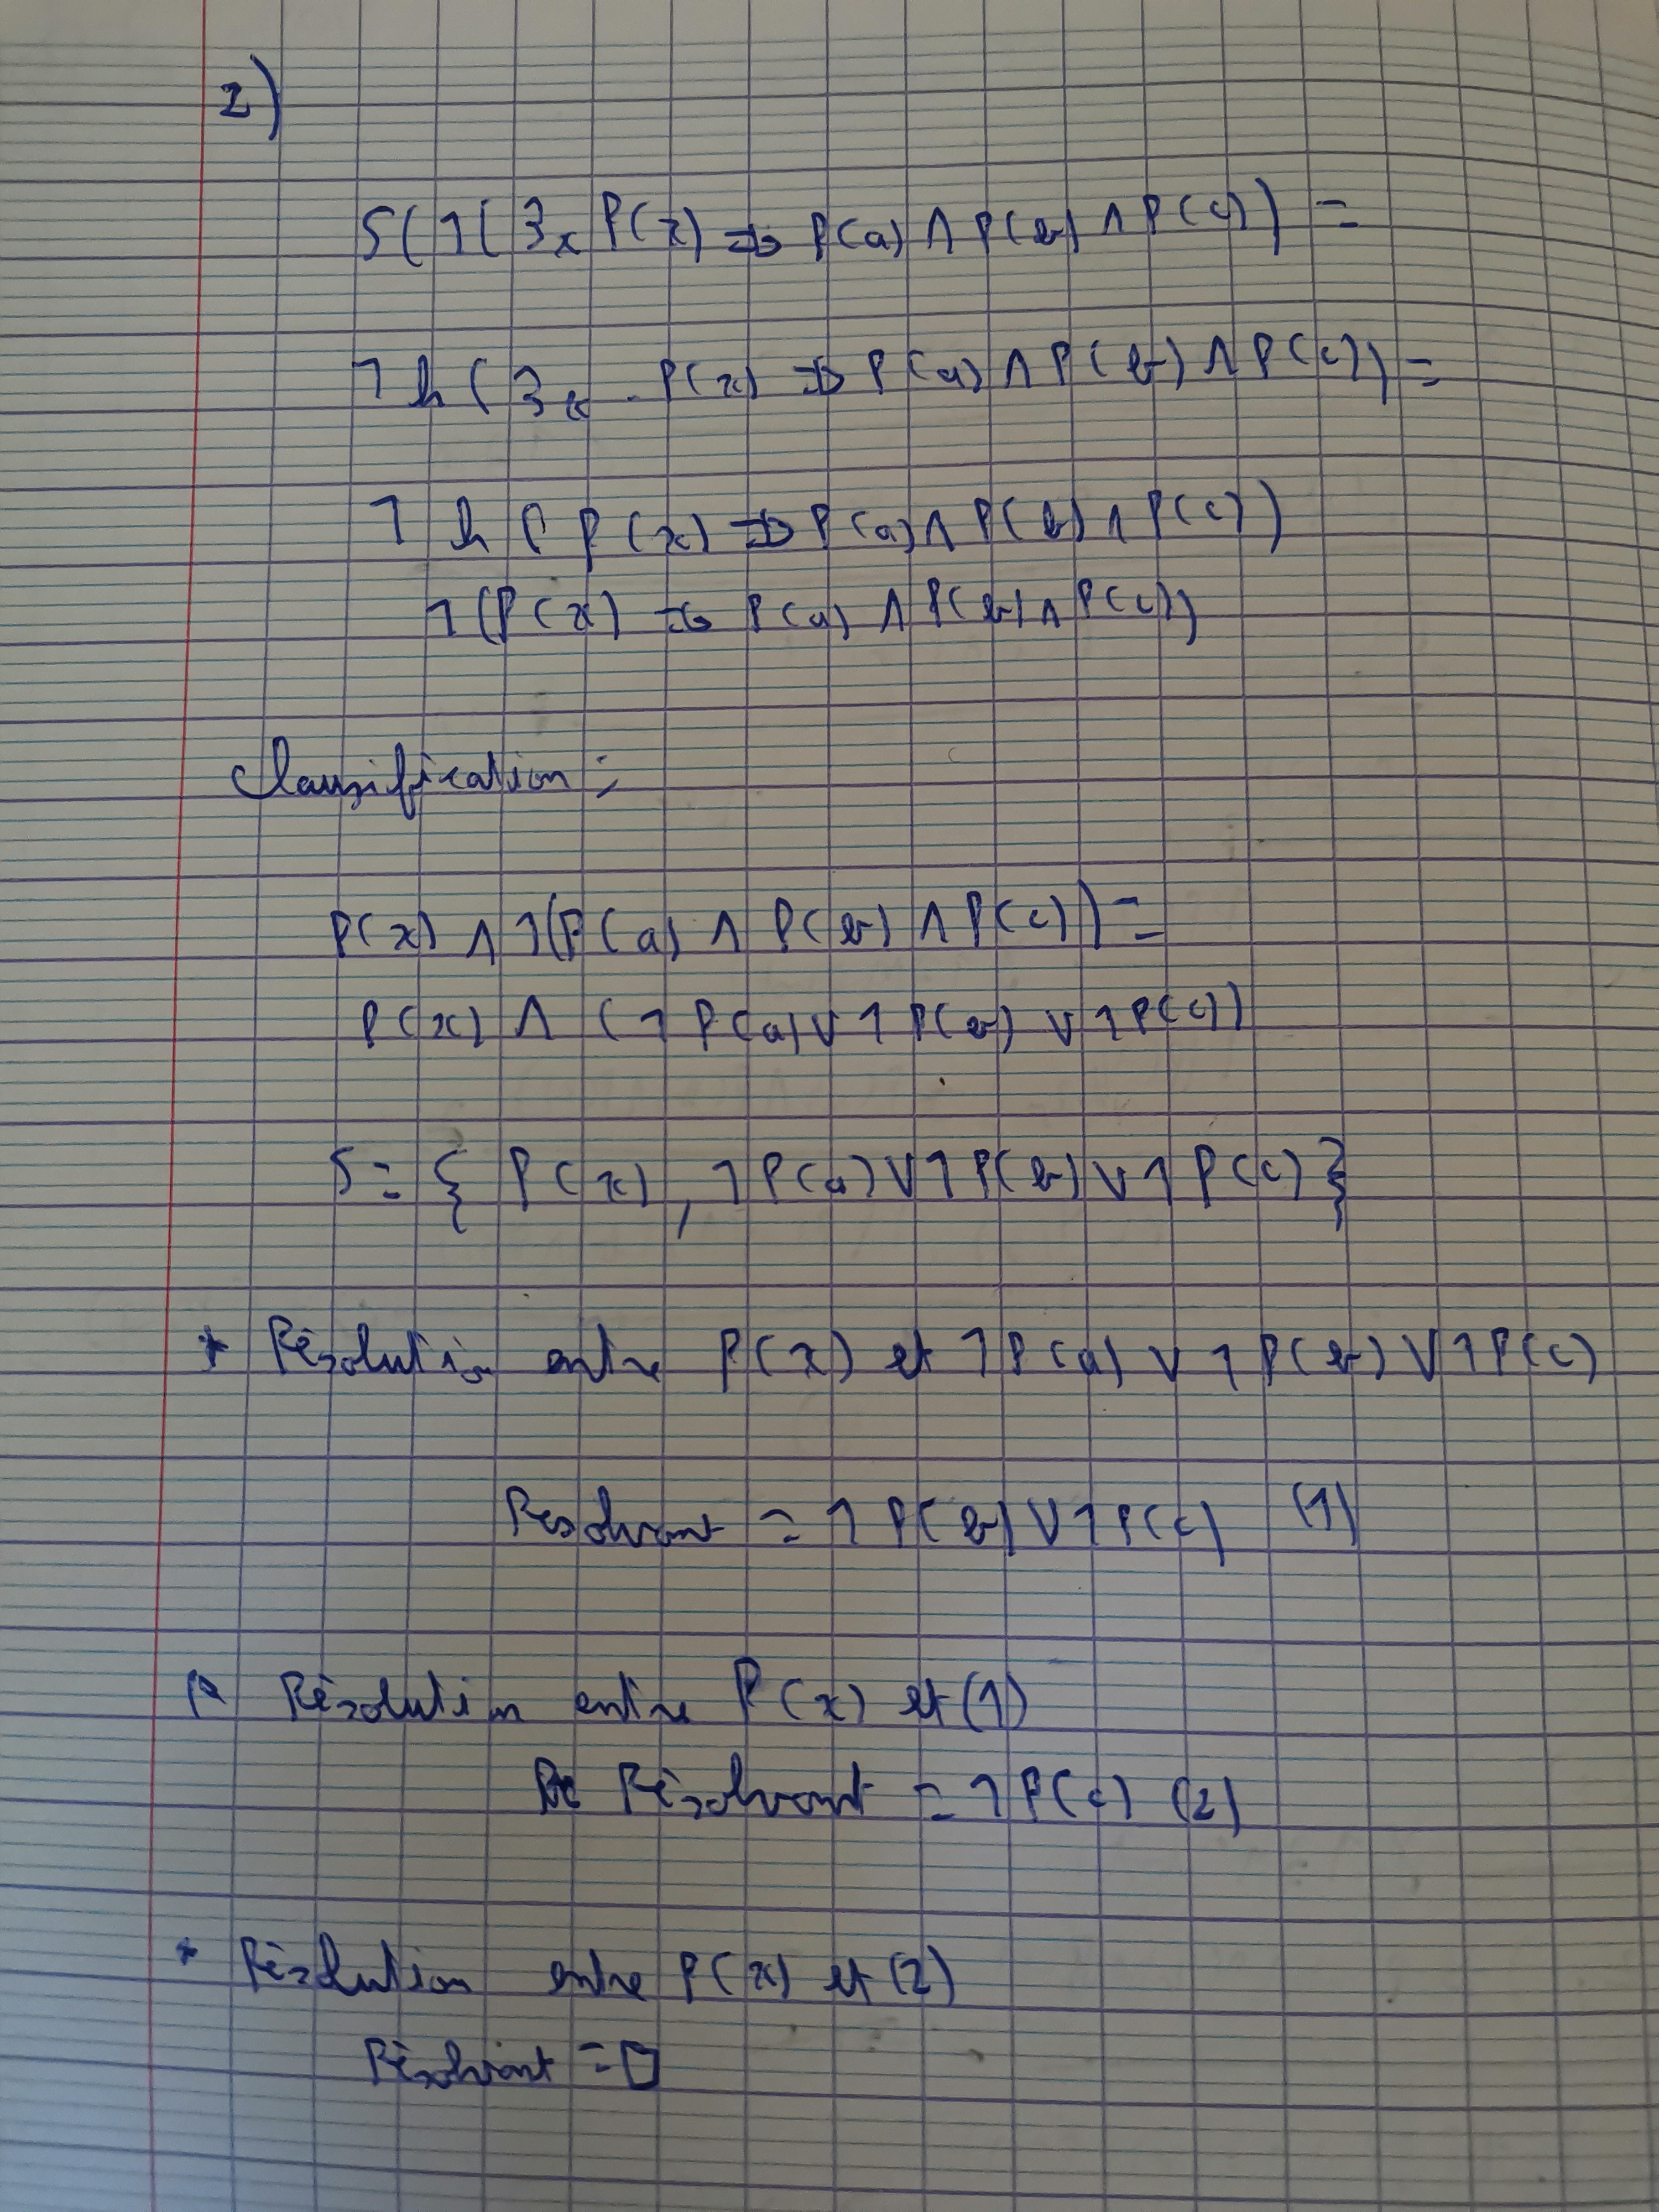 2)
S(¬(∃x P(x) ⇒ P(a) ∧ P(b) ∧ P(c)) =
¬ h (∃x . P(x) ⇒ P(a) ∧ P(b) ∧ P(c)) =
¬ h ( P(x) ⇒ P(a) ∧ P(b) ∧ P(c))
¬(P(x) ⇒ P(a) ∧ P(b) ∧ P(c))
Clausification :
P(x) ∧ ¬(P(a) ∧ P(b) ∧ P(c)) =
P(x) ∧ (¬P(a) ∨ ¬P(b) ∨ ¬P(c))
S = { P(x) , ¬P(a) ∨ ¬P(b) ∨ ¬P(c) }
* Résolution entre P(x) et ¬P(a) ∨ ¬P(b) ∨ ¬P(c)
Resolvant = ¬P(b) ∨ ¬P(c) (1)
* Résolution entre P(x) et (1)
Résolvant = ¬P(c) (2)
* Résolution entre P(x) et (2)
Résolvant = □